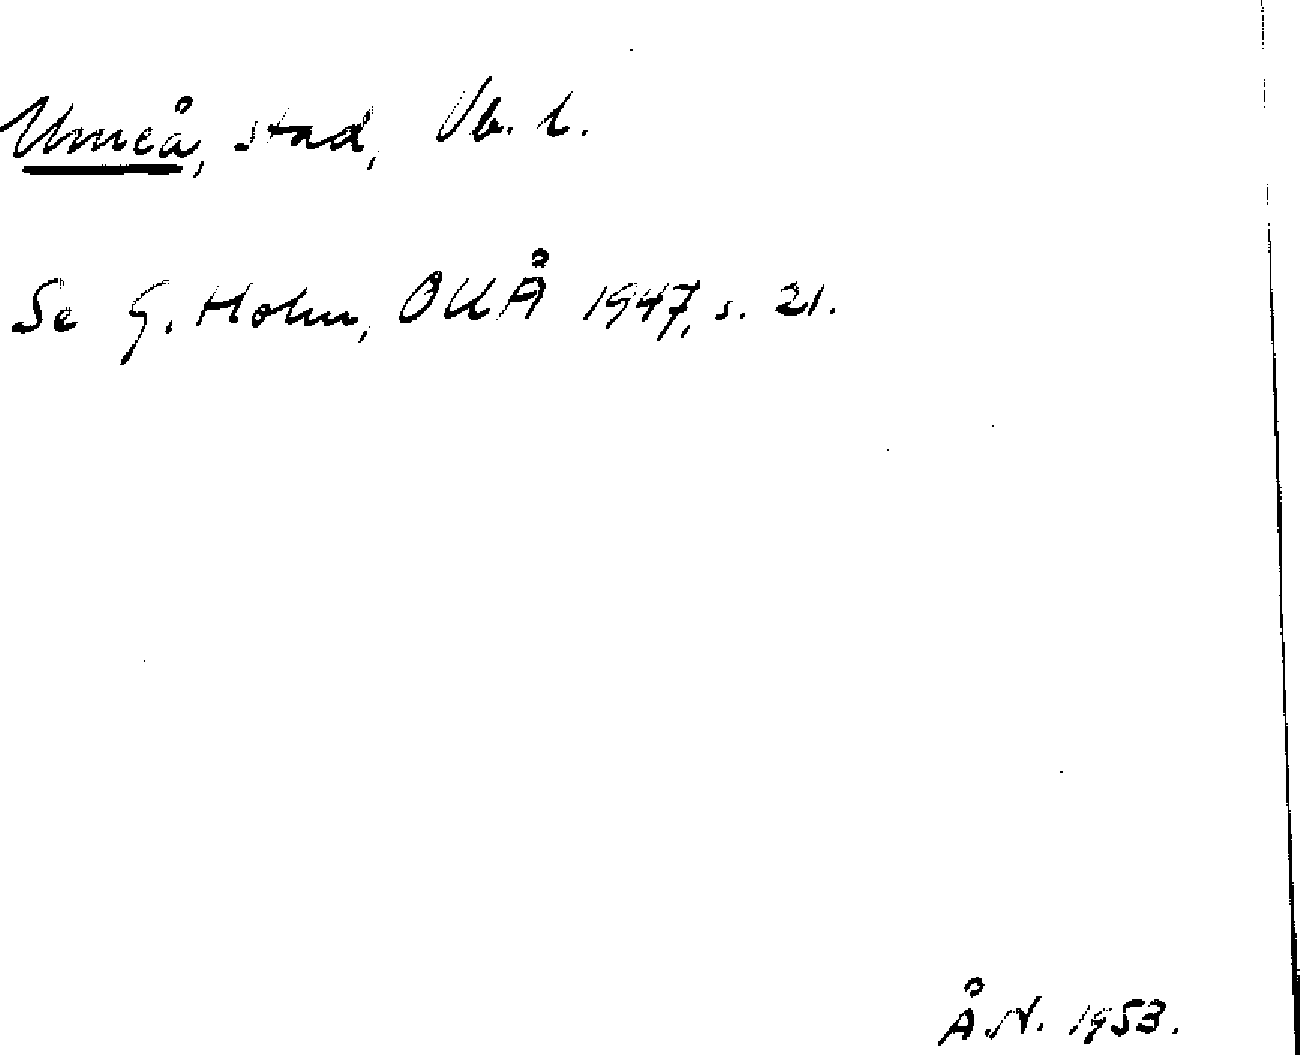 Umeå, stad, Vb. l.
Se G. Holm, OUÅ 1947, s. 21.
Å.N. 1953.